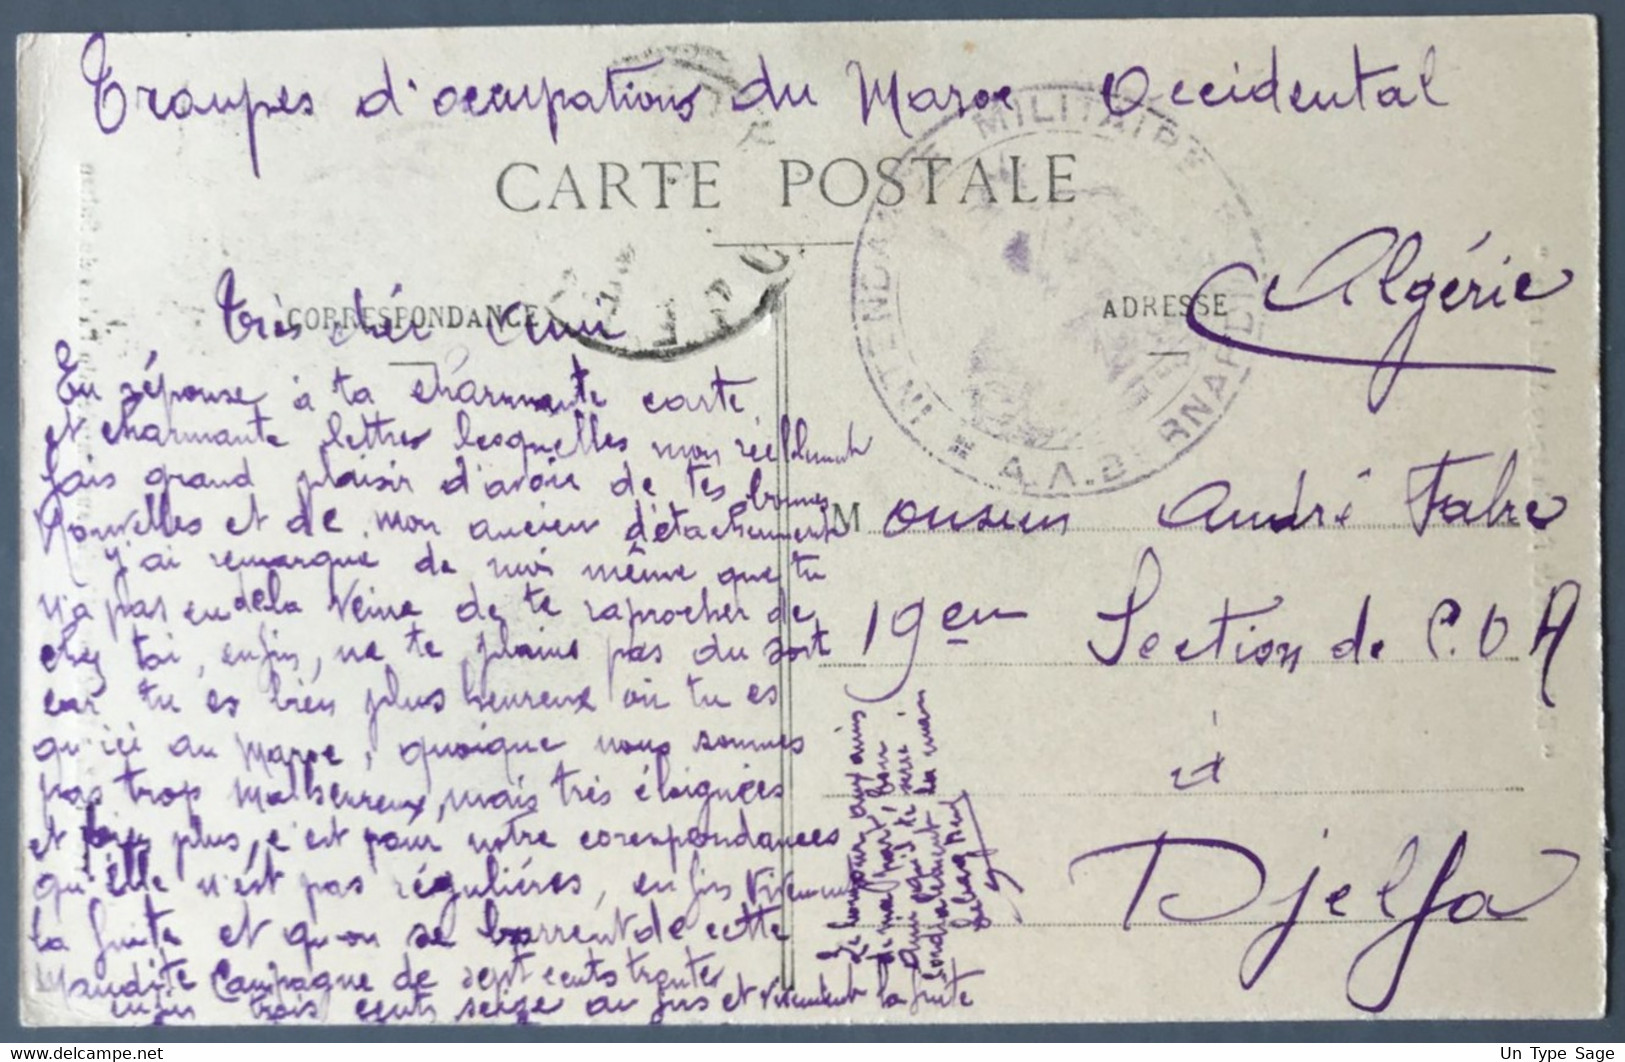 Troupes d'occupations du Maroc Occidental
CARTE POSTALE
CORRESPONDANCE
ADRESSE
INTENDANCE MILITAIRE
A.A. BERNARDI
très cher ami
En réponse à ta charmante carte
et charmante lettres lesquelles mon réellement
fais grand plaisir d'avoir de tes bonnes
Nouvelles et de mon ancien détachement
J'ai remarque de moi même que tu
n'a pas eu de la Veine de te raprocher de
chez toi, enfin, ne te plains pas du sort
car tu es bien plus heureux où tu es
qu'ici au Maroc, quoique nous sommes
pas trop malheureux, mais très éloignées
et bien plus, c'est pour notre corespondances
qu'elle n'est pas réguliéres, enfin Vivement
la fuite et qu'on se barrent de cette
Maudite Campagne de sept cents trente
enfin trois cents seize au jus et Vivement la fuite
le bonjour aux amis
de ma part, ton
ami qui te serre
cordialement la main
Algérie
Monsieur André Fabre
19em Section de C.O.A
à
Djelfa
Un Type Sage